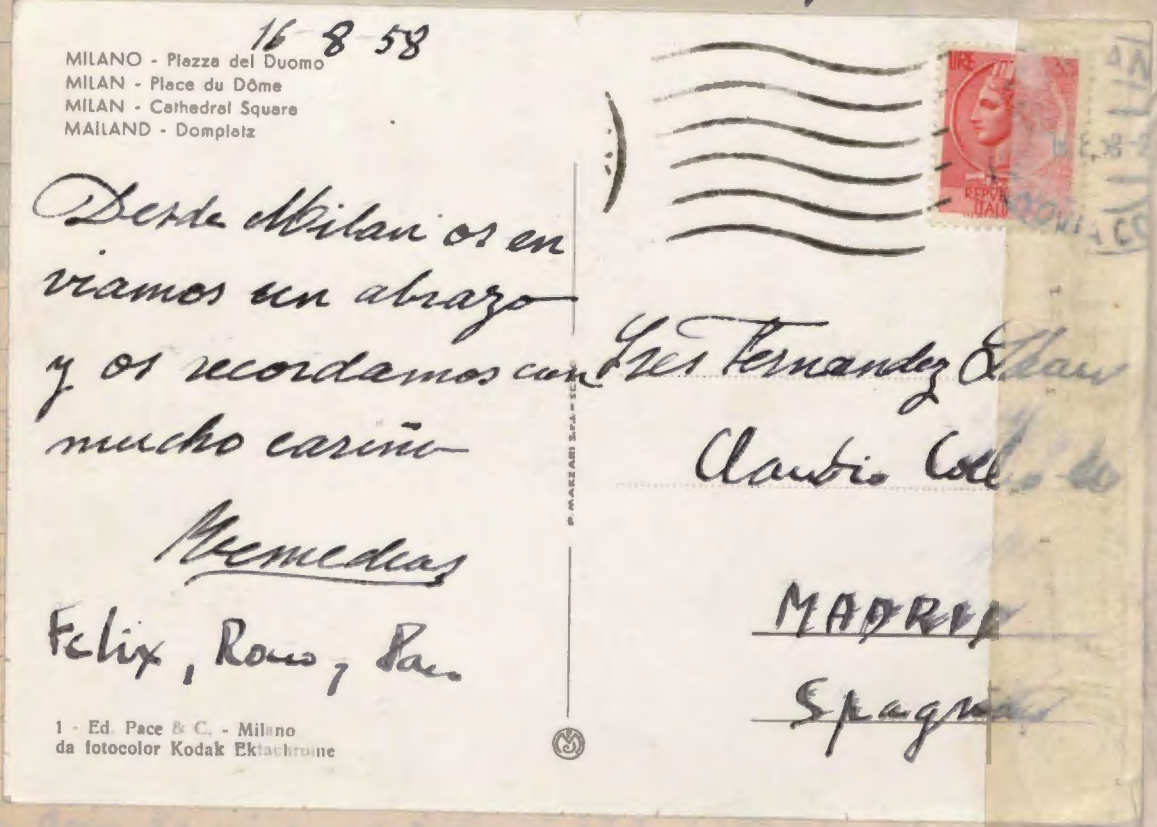 16-8-58
MILANO - Piazza del Duomo
MILAN - Place du Dôme
MILAN - Cathedral Square
MAILAND - Domplatz
Desde Milan os en
viamos un abrazo
y os recordamos con
mucho cariño
Remedios
Felix,
1 - Ed. Pace & C. - Milano
da fotocolor Kodak Ektachrome
P. MARZARI S.r.l.
LIRE
REPVB
ITALI
Sres Fernandez
Claudio Coello
MADRID
Spagna